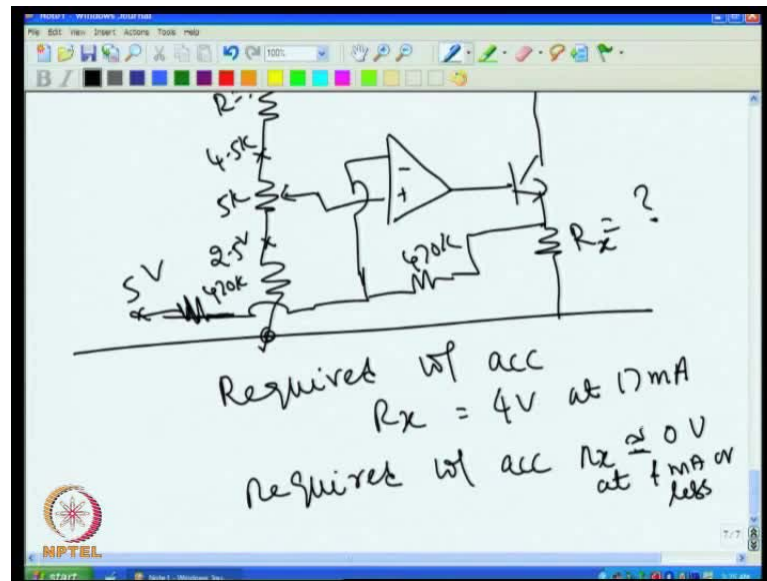 Note1 - Windows Journal
File Edit View Insert Actions Tools Help
100%
B I
R=
4.5K
5K
2.5V
5V
470K
470K
-
+
Rx = ?
Required vol acc
Rx = 4V at 17mA
Required vol acc Rx ≅ 0V
at 1 mA or
less
7/7
NPTEL
start
Note1 - Windows Jou...